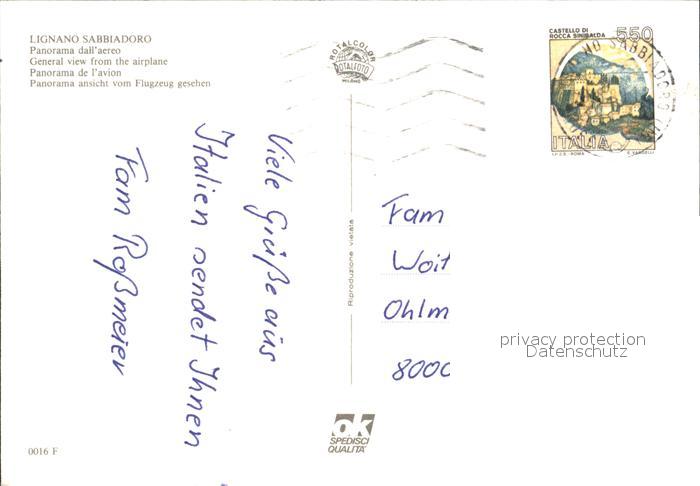 LIGNANO SABBIADORO
Panorama dall'aereo
General view from the airplane
Panorama de l'avion
Panorama ansicht vom Flugzeug gesehen
ROTALCOLOR
ROTALFOTO
MILANO
CASTELLO DI
ROCCA SINIBALDA
550
NO SABBIADORO
ITALIA
I.P.Z.S. ROMA
E. VANGELLI
Viele Grüße aus
Italien sendet Ihnen
Fam Roßmeier
Riproduzione vietata
Fam
Woit
Ohlm
8000
privacy protection
Datenschutz
ok
SPEDISCI
QUALITA'
0016 F